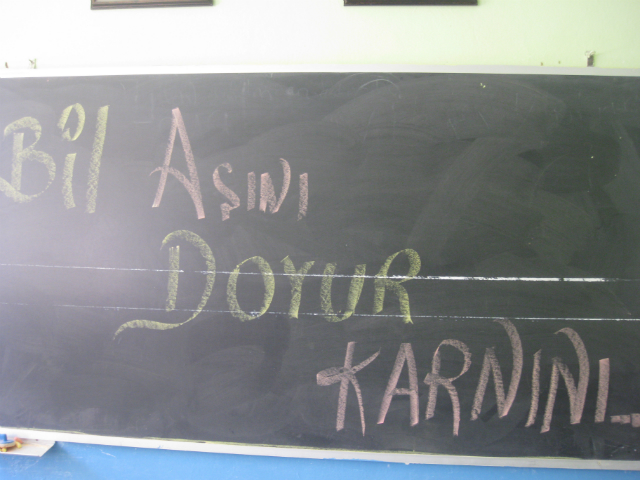 Bil AŞINI
DOYUR
KARNINI